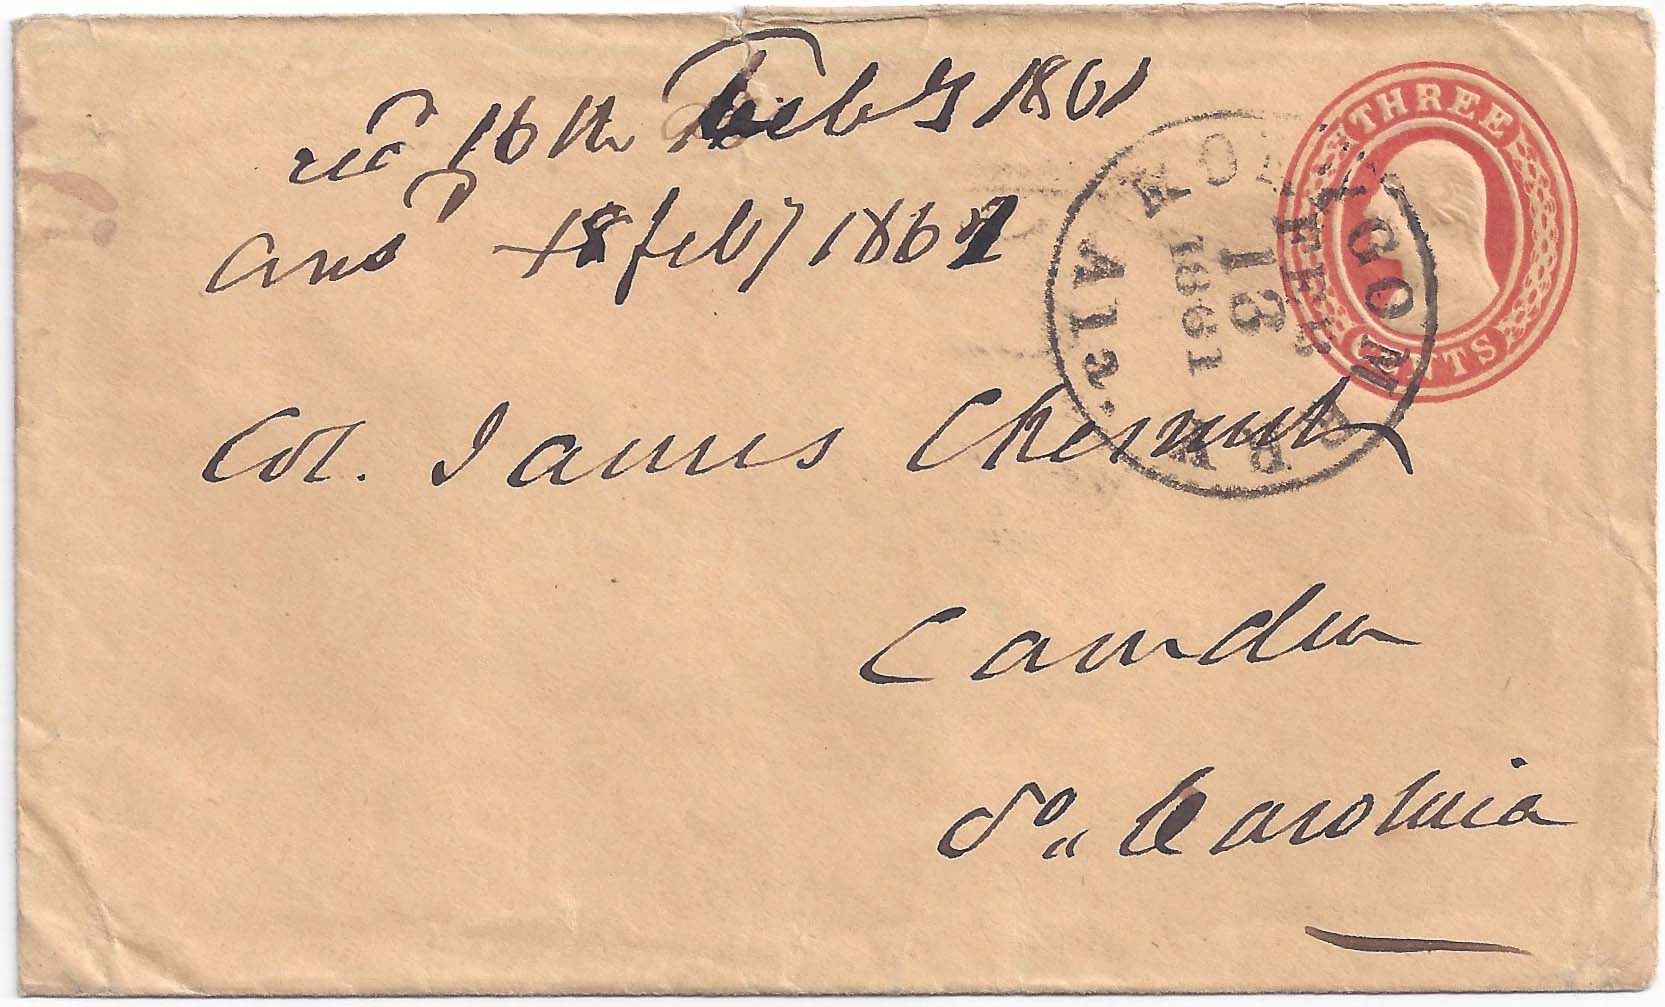 recd 16th Feby 1861
ansd 18 feby 1861
THREE
CENTS
MONTGOMERY
Ala.
FEB
13
1861
Col. James Chesnut
Camden
So,, Carolina